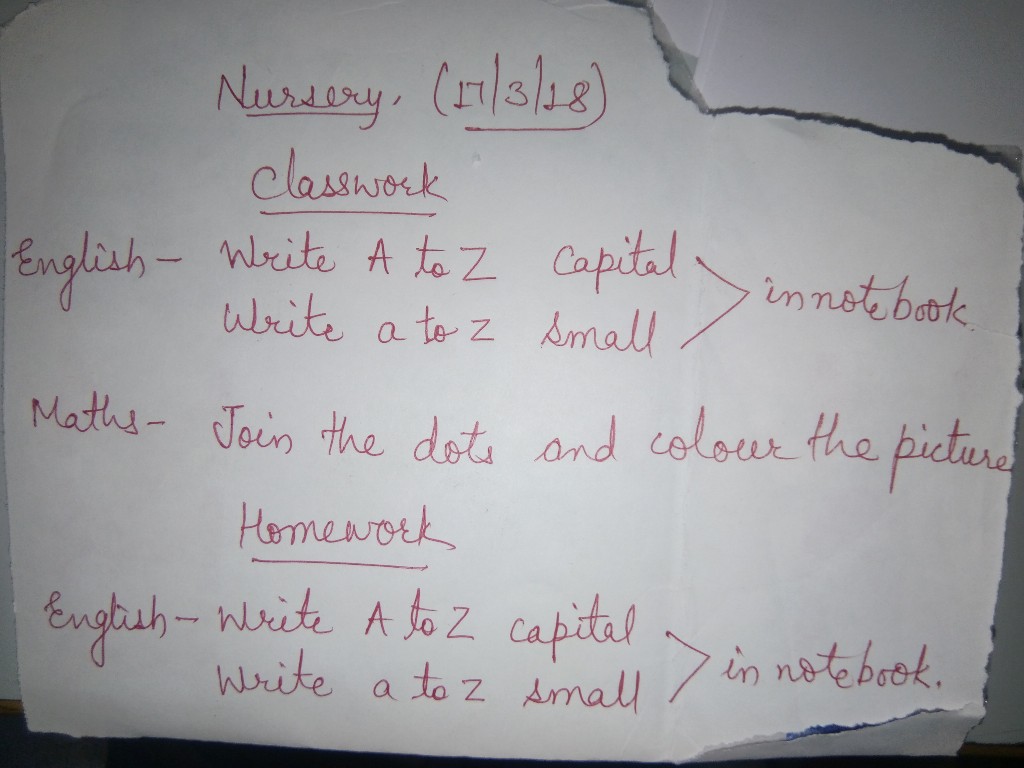 Nursery. (17/3/18)
Classwork
English - Write A to Z Capital
Write a to z small > in notebook.
Maths - Join the dots and colour the picture
Homework
English - Write A to Z capital
Write a to z small > in notebook.